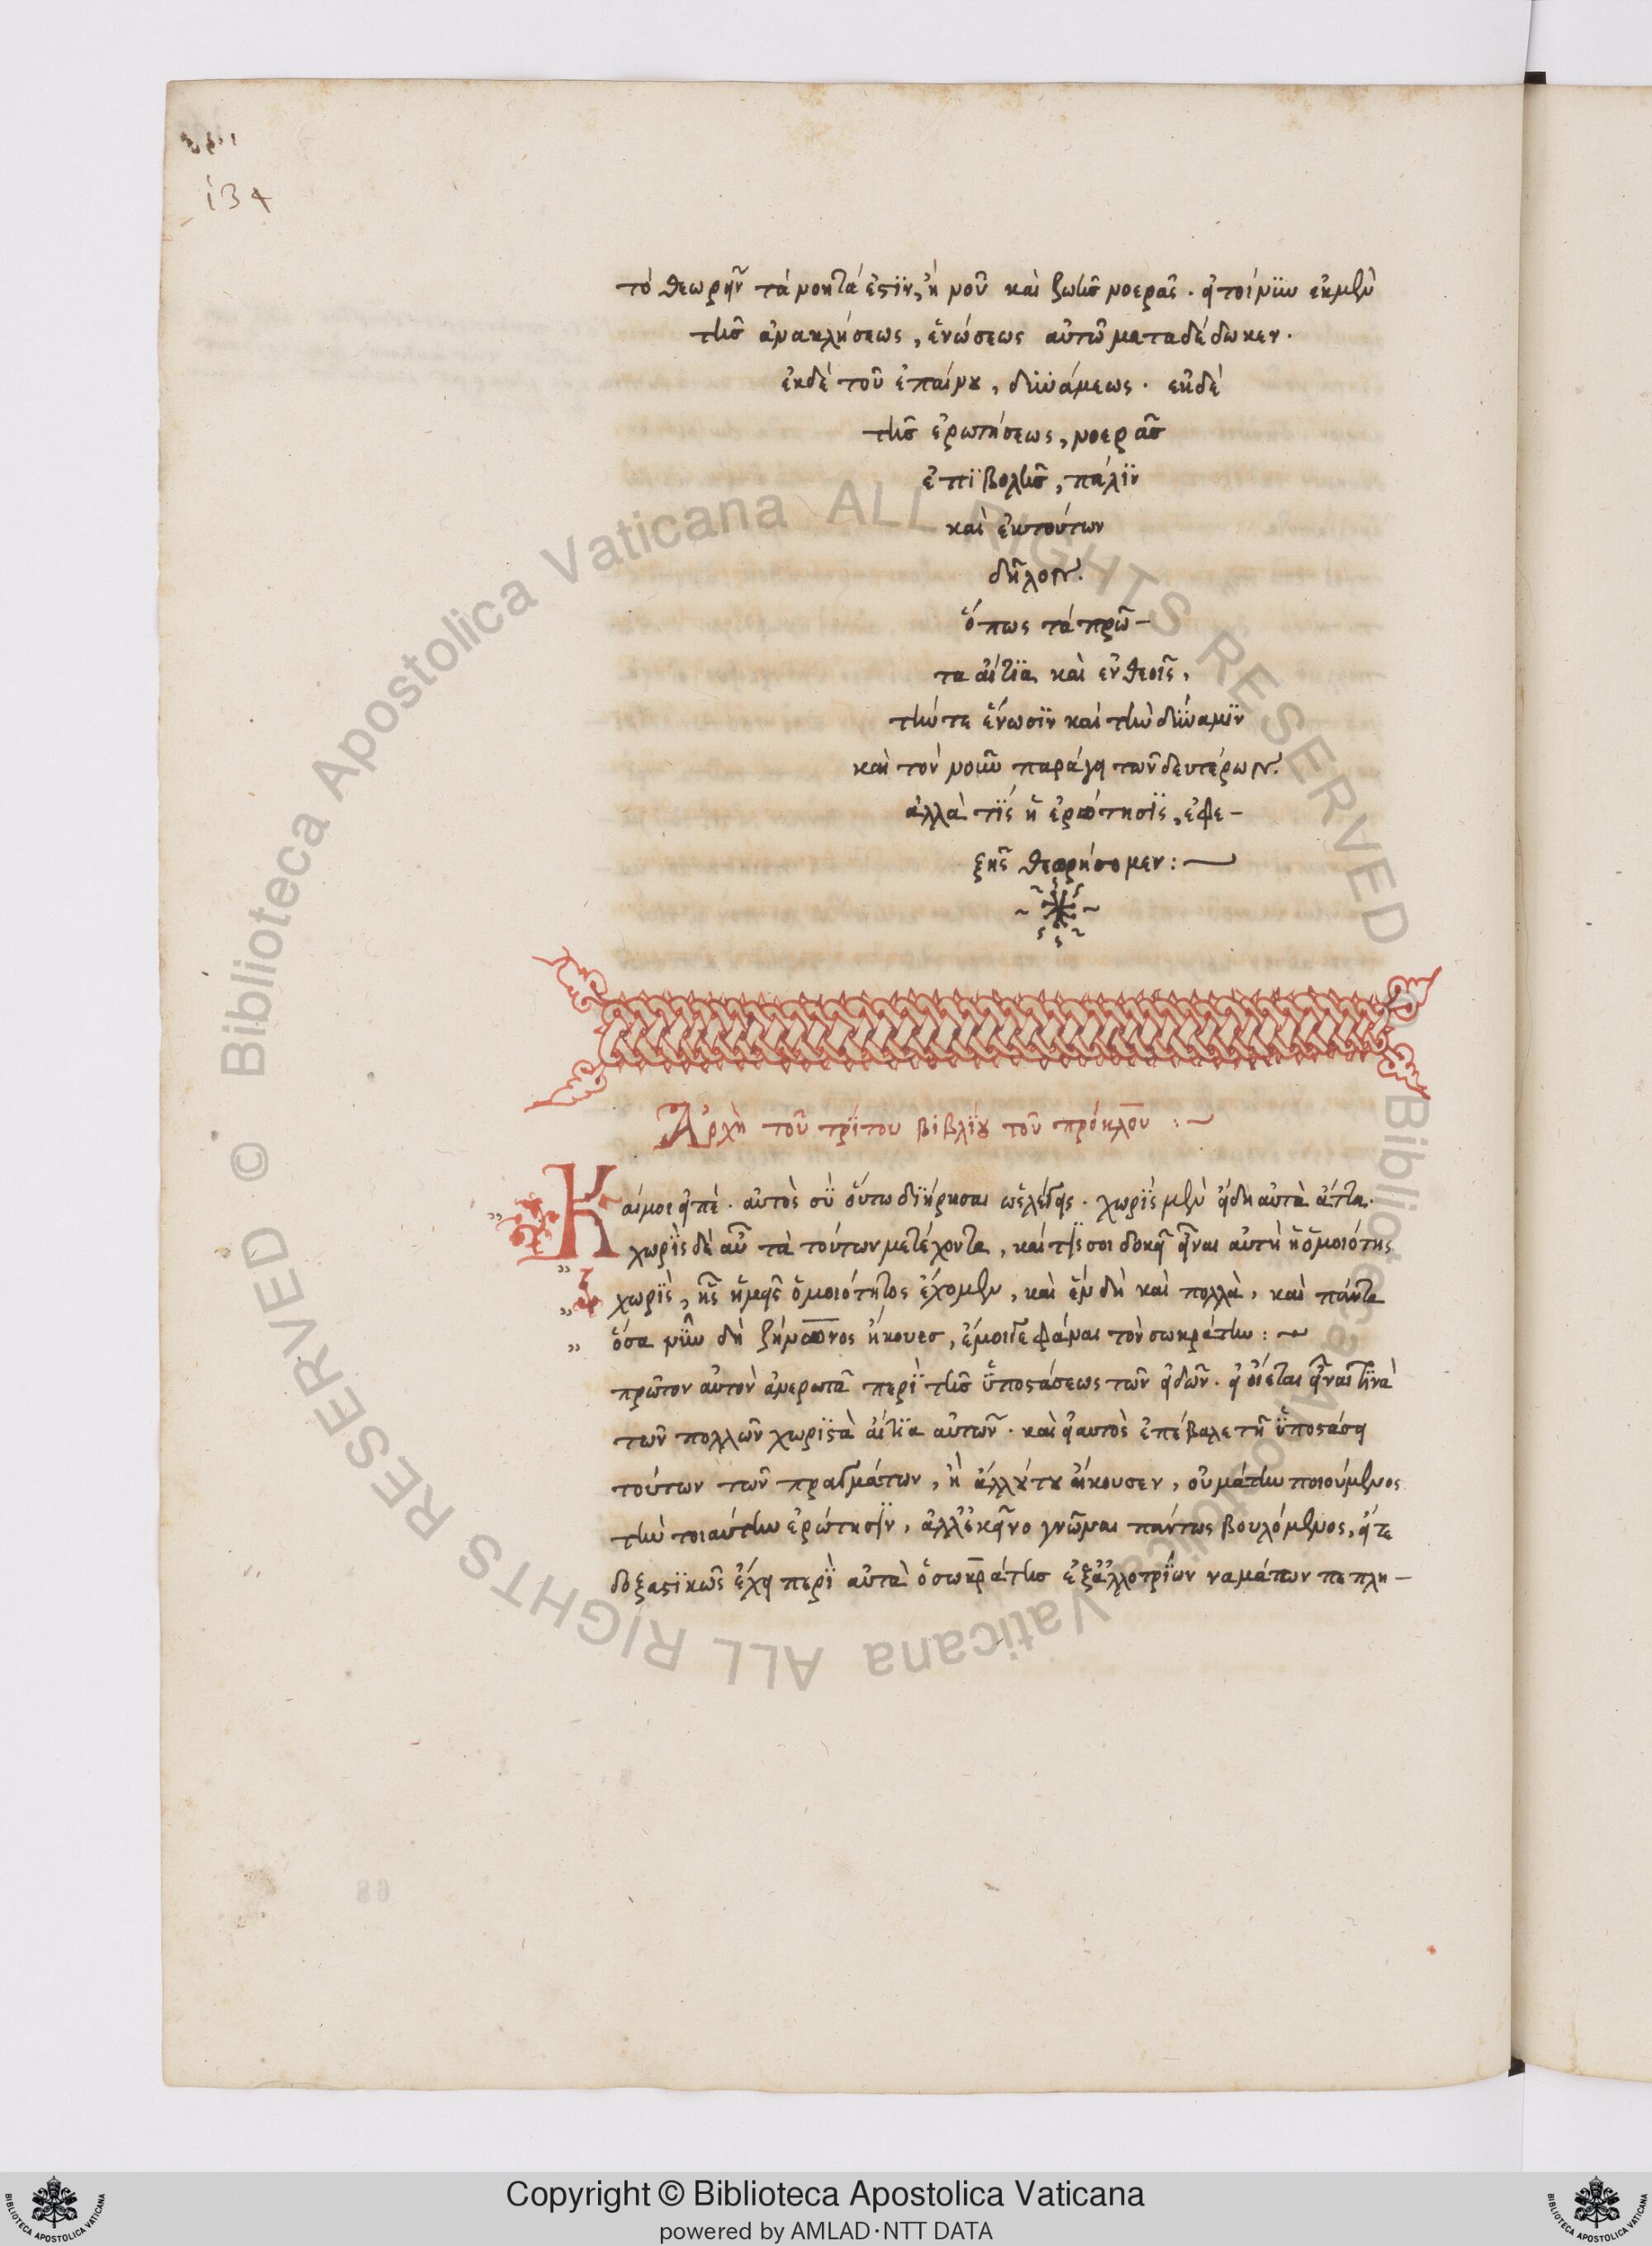 134
τὸ θεωρεῖν τὰ νοητά ἐστϊν, ἢ νοῦ καὶ ζωῆς νοερᾶς. εἰ τοίνϋν ἐκμὲν
τῆς ἀνακλήσεως, ἑνώσεως αὐτῶ μεταδέδωκεν.
ἐκδὲ τοῦ ἐπαίνου, δϋνάμεως. ἐκδὲ
τῆς ἐρωτήσεως, νοερᾶς
ἐπϊβολῆς, πάλϊν
καὶ ἐκτούτων
δῆλον.
ὅπως τὰ πρῶ-
τα αἴτϊα καὶ ἐν θεοῖς,
τήν τε ἕνωσϊν καὶ τὴν δϋναμϊν
καὶ τὸν νοῦν παράγει τῶν δευτέρων.
ἀλλὰ τΐς ἡ ἐρώτησϊς, ἐφε-
ξῆς θεωρήσομεν:
Ἀρχὴ τοῦ τρΐτου βιβλΐου τοῦ πρόκλου :~
Καίμοι εἰπὲ. αὐτὸς σὺ οὕτω διῄρησαι ὡς λέγεις. χωρὶς μὲν εἴδη αὐτὰ ἄττα.
χωρὶς δὲ αὖ τὰ τούτων μετέχοντα, καί τΐ σοι δοκεῖ εἶναι αὐτὴ ἡ ὁμοιότης
χωρὶς, ἧς ἡμεῖς ὁμοιότητος ἔχομεν, καὶ ἓν δὴ καὶ πολλὰ, καὶ πάντα
ὅσα νῦν δὴ ζήνωνος ἤκουες, ἔμοιγε φάναι τὸν σωκράτην :~
πρῶτον αὐτὸν ἀνερωτᾶ περὶ τῆς ὑποστάσεως τῶν εἰδῶν. εἰ οἴεται εἶναί τινα
τῶν πολλῶν χωρϊστὰ αἴτϊα αὐτῶν. καὶ εἰ αυτὸς ἐπέβαλε τῆ ὑποστάσει
τούτων τῶν πραγμάτων, ἢ ἄλλου του ἤκουσεν, οὐ μάτην ποιούμενος
τὴν τοιαύτην ἐρώτησϊν, ἀλλ' ἐκεῖνο γνῶναι πάντως βουλόμενος, εἴτε
δοξαστϊκῶς ἔχει περὶ αὐτὰ ὁ σωκράτης ἐξ ἀλλοτρΐων ναμάτων πεπλη-
Copyright © Biblioteca Apostolica Vaticana
powered by AMLAD·NTT DATA
© Biblioteca Apostolica Vaticana ALL RIGHTS RESERVED
© Biblioteca Apostolica Vaticana ALL RIGHTS RESERVED